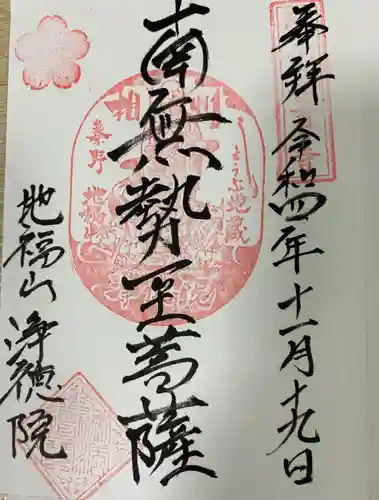 奉拝 令和四年十一月十九日
南無勢至菩薩
地福山 浄徳院
相州
秦野